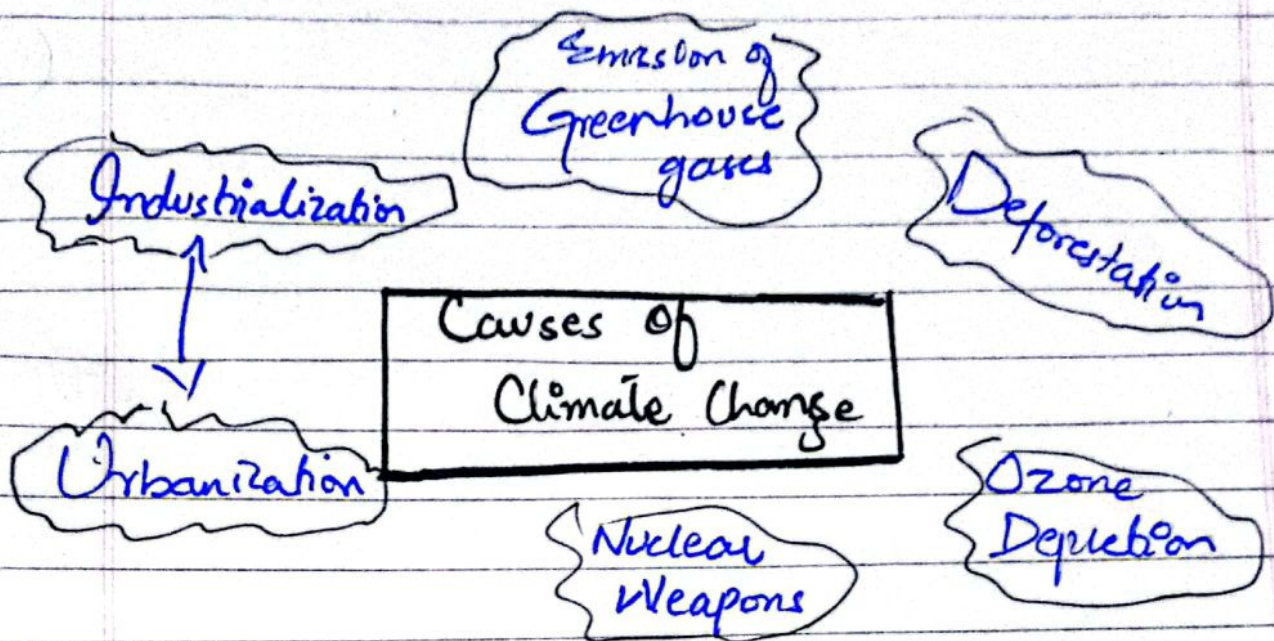 Emission of
Greenhouse
gases
Industrialization
Deforestation
Causes of
Climate Change
Urbanization
Ozone
Depletion
Nuclear
Weapons